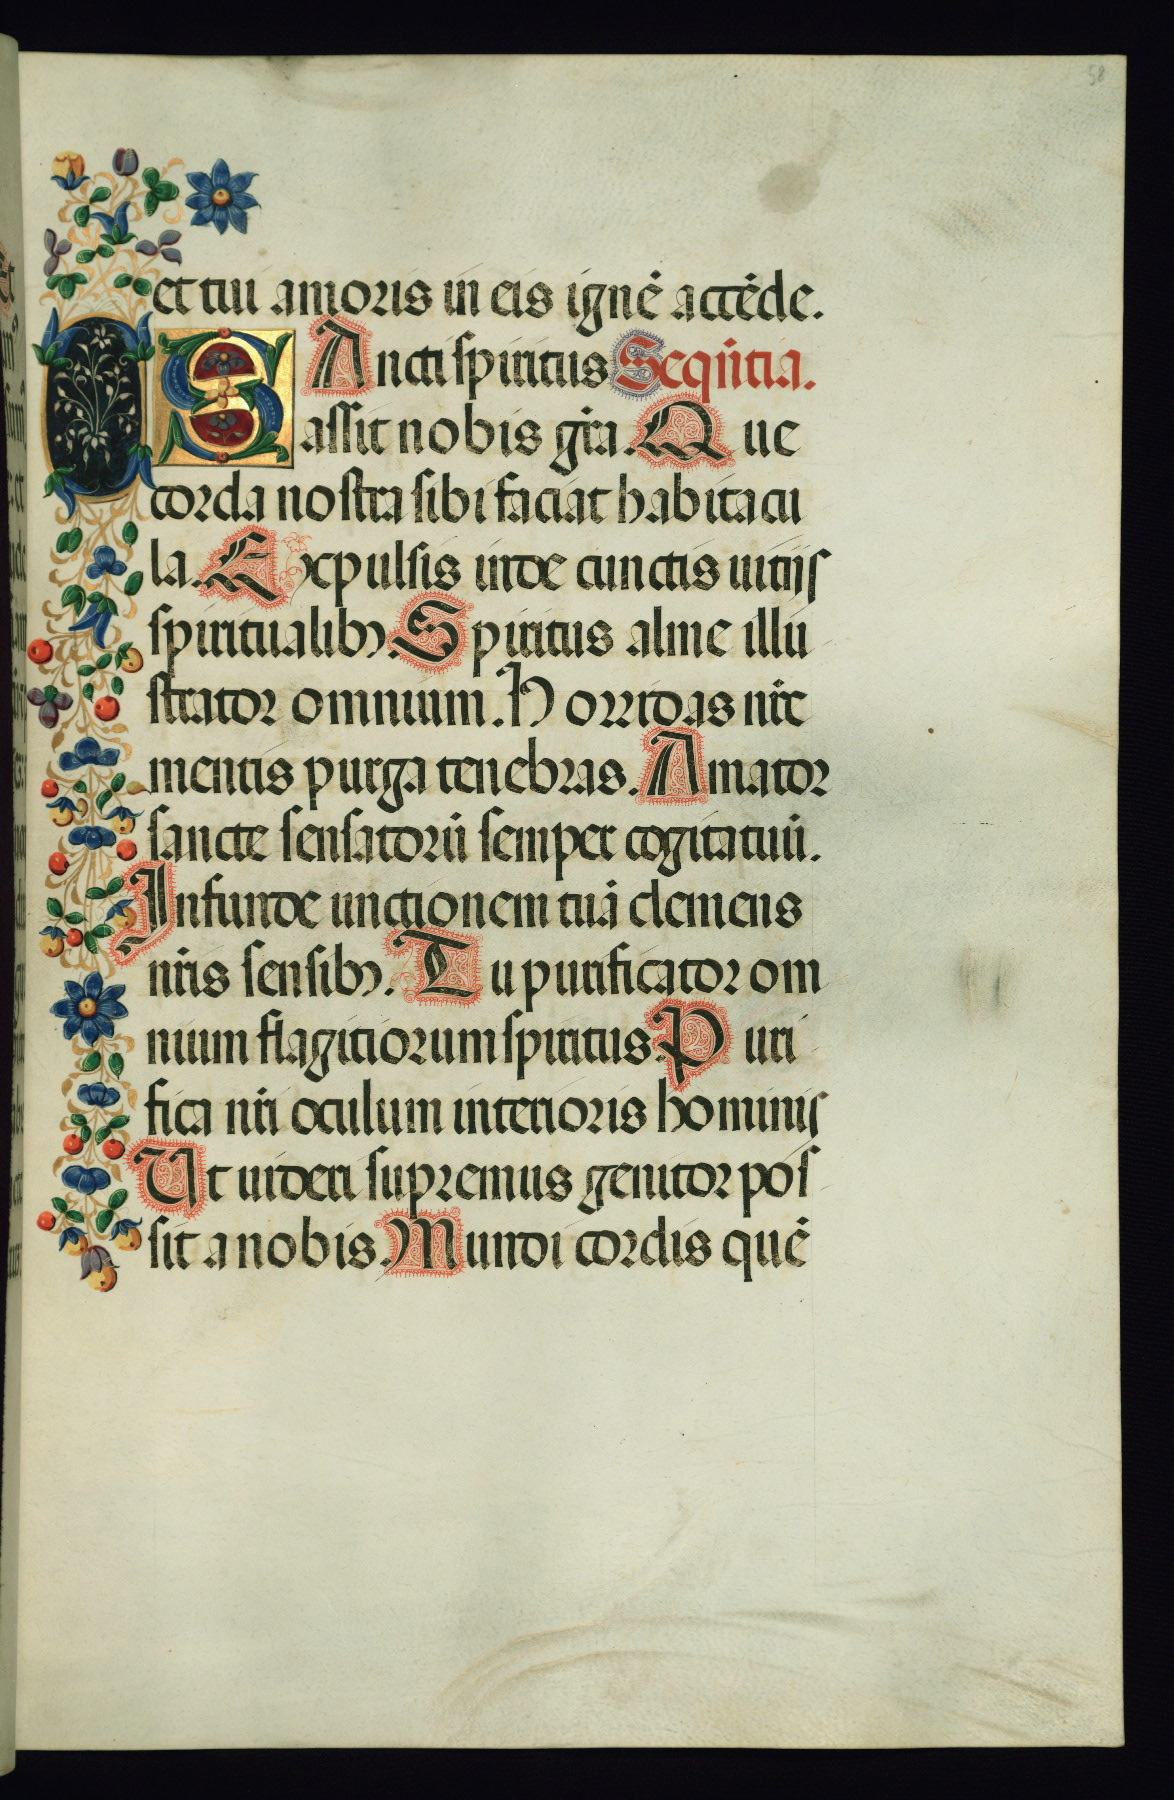 58
et tui amoris in eis ignē accēde.
SAncti spiritus Seqūtia.
assit nobis gr̄a. Que
corda nostra sibi faciat habitacu
la. Expulsis inde cunctis uitijs
spiritualibꝫ. Spiritus alme illu
strator omnium. Horridas nr̄e
mentis purga tenebras. Amator
sancte sensatorū semper cogitatuū.
Infunde unctionem tuā clemens
nr̄is sensibꝫ. Tu purificator om
nium flagitiorum spiritus. Puri
fica nr̄i oculum interioris hominis
Ut uideri supremus genitor pos
sit a nobis. Mundi cordis quē